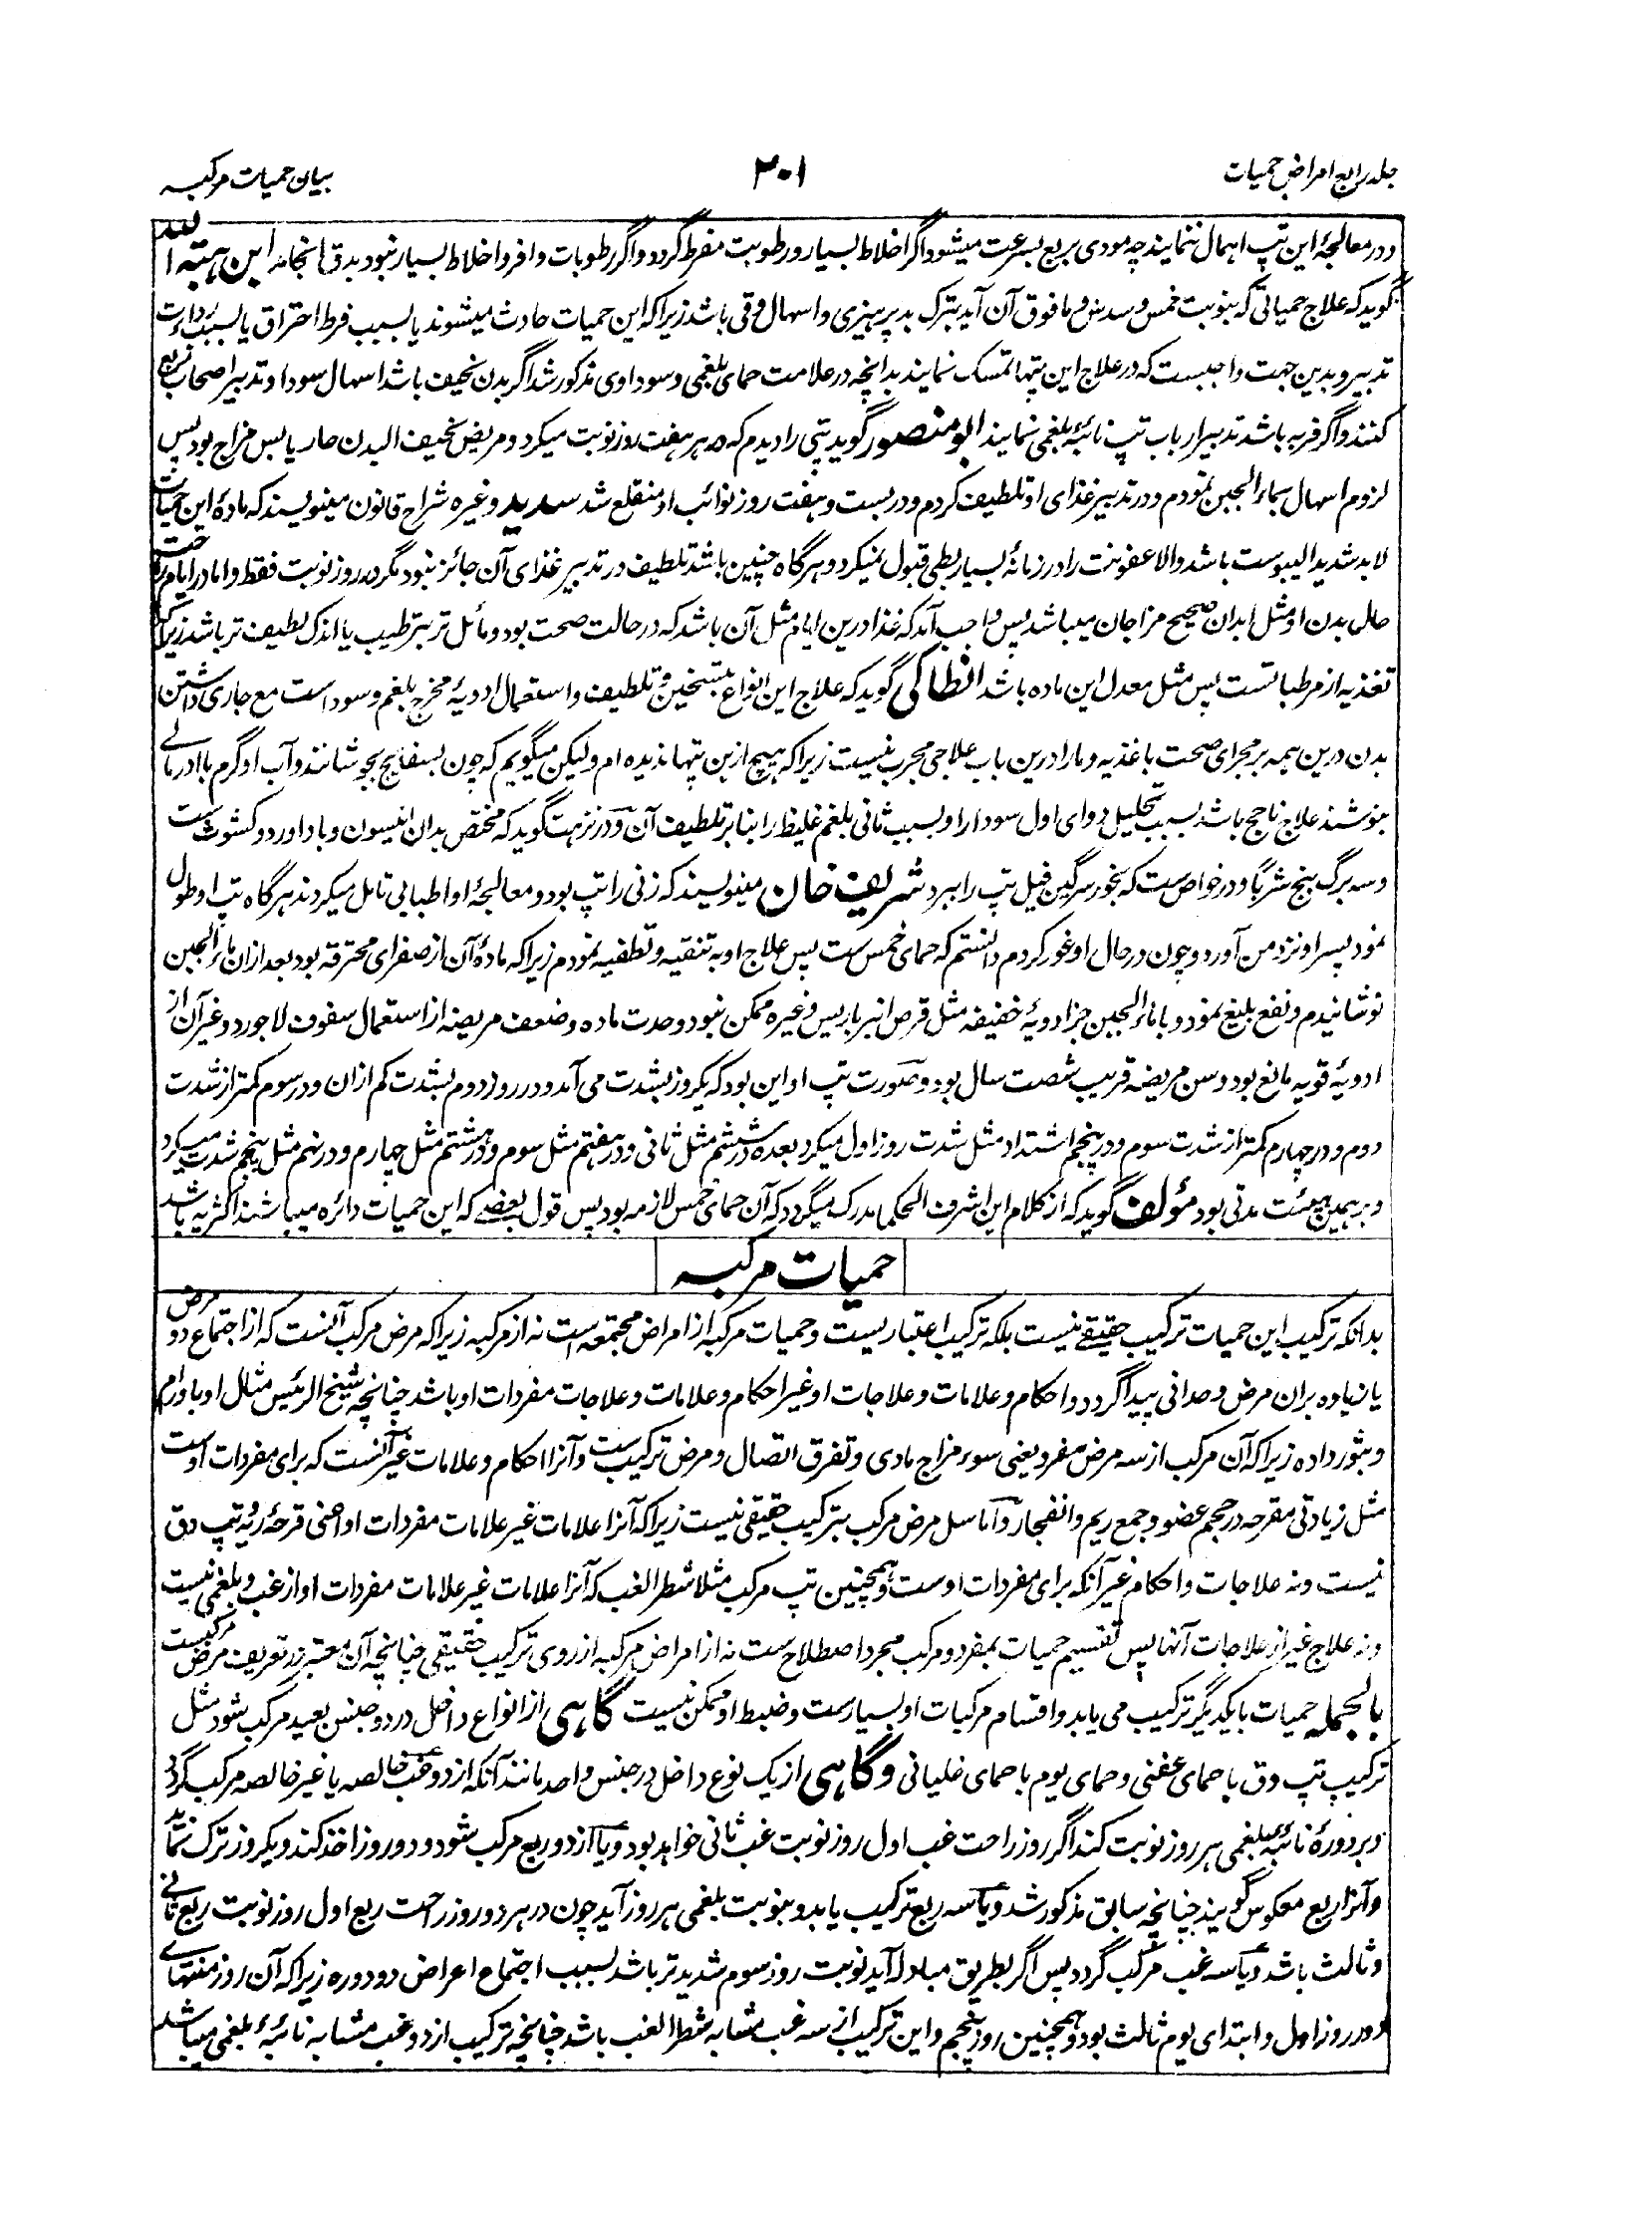 جلد رابع امراض حمیات
۳۰۱
بیان حمیات مرکبه
و در معالجۀ این تپ اهمال ننمایند چه مودی بربع بسرعت میشود اگر اخلاط بسیار و رطوبت مفرط گردد و اگر رطوبات وافر و اخلاط بسیار نبود بدق انجامد ابن هبته الله
گوید که علاج حمیاتی که بنوبت خمس و سدس و مافوق آن آید بترک بد پرهیزی و اسهال و قی باشد زیرا که این حمیات حادث میشوند یا بسبب فرط احتراق یا بسبب رداءت
تدبیر و بدین جهت واجبست که در علاج این تپها تمسک نمایند بدانچه در علامت حمای بلغمی و سوداوی مذکور شد اگر بدن نحیف باشد اسهال سودا و تدبیر اصحاب ربع
کنند و اگر فربه باشد تدبیر ارباب تپ نائبۀ بلغمی نمایند ابو منصور گوید تپی را دیدم که در هر هفت روز نوبت میکرد و مریض نحیف البدن حار یابس مزاج بود پس
لزوم اسهال بماء الجبن نمودم و در تدبیر غذای او تلطیف کردم و در بست و هفت روز نوائب او منقلع شد سدید و غیره شراح قانون مینویسند که مادۀ این حمیات
لابد شدید الیبوست باشد والا عفونت را در زمانۀ بسیار بطی قبول نمیکرد و هرگاه چنین باشد تلطیف در تدبیر غذای آن جائز نبود مگر در روز نوبت فقط و اما در ایام راحت
حال بدن او مثل ابدان صحیح مزاجان میباشد پس واجب آمد که غذا درین ایام مثل آن باشد که در حالت صحت بود و مائل تر بترطیب یا اندک لطیف تر باشد زیرا که
تغذیه از مرطباتست پس مثل معدل این ماده باشد انطاکی گوید که علاج این انواع بتسخین و تلطیف و استعمال ادویۀ مخرج بلغم و سوداست مع جاری داشتن
بدن درین همه بر مجرای صحت باغذیه و ما را درین باب علاجی مجرب نیست زیرا که هیچ ازین تپها ندیده ام و لیکن میگویم که چون بسفایج بجوشانند و آب او گرم با ادرمالی
بنوشند علاج ناجح باشد بسبب تحلیل دوای اول سودا را و بسبب ثانی بلغم غلیظ را بنا بر تلطیف آن و در نزهت گوید که مختص بدان انیسون و باداورد و کشوث ست
و سه برگ بنج شرباً و در خواص ست که بخور سرگین فیل تپ را ببرد شریف خان مینویسند که زنی را تپ بود و معالجۀ او اطبایی تامل میکردند هرگاه تپ او طول
نمود پسر او نزد من آورد و چون در حال او غور کردم دانستم که حمای خمس ست پس علاج او به تنقیه و تطفیه نمودم زیرا که مادۀ آن از صفرای محترقه بود بعد ازان ماء الجبن
نوشانیدم و نفع بلیغ نمود و با ماء الجبن جز ادویۀ خفیفه مثل قرص انبرباریس و غیره ممکن نبود و حدت ماده و ضعف مریضه از استعمال سفوف لاجورد و غیر آن از
ادویۀ قویه مانع بود و سن مریضه قریب شصت سال بود و صورت تپ او این بود که یکروز بشدت می آمد و در روز دوم بشدت کم ازان و در سوم کمتر از شدت
دوم و در چهارم کمتر از شدت سوم و در پنجم اشتداد مثل شدت روز اول میکرد بعده در ششم مثل ثانی و در هفتم مثل سوم و در هشتم مثل چهارم و در نهم مثل پنجم شدت میکرد
و بر همین هیئت مدتی بود مؤلف گوید که از کلام این اشرف الحکما مدرک میگردد که آن حمای خمس لازمه بود پس قول بعضی که این حمیات دائره میباشند اکثریه باشد
حمیات مرکبه
بدانکه ترکیب این حمیات ترکیب حقیقی نیست بلکه ترکیب اعتباریست و حمیات مرکبه از امراض مجتمعه است نه از مرکبه زیرا که مرض مرکب آنست که از اجتماع دو مرض
یا زیاده بران مرض وحدانی پیدا گردد و احکام و علامات و علاجات او غیر احکام و علامات و علاجات مفردات او باشد چنانچه شیخ الرئیس مثال او باورام
و بثور داده زیرا که آن مرکب از سه مرض مفرد یعنی سوء مزاج مادی و تفرق اتصال و مرض ترکیب ست و آنرا احکام و علامات غیر آنست که برای مفردات اوست
مثل زیادتی مقرحه در حجم عضو و جمع ریم و انفجار و اما سل مرض مرکب بترکیب حقیقی نیست زیرا که آنرا علامات غیر علامات مفردات او اعنی قرحۀ ریه و تپ دق
نیست و نه علاجات و احکام غیر آنکه برای مفردات اوست و همچنین تپ مرکب مثلا شطر الغب که آنرا علامات غیر علامات مفردات او از غب و بلغمی نیست
و نه علاج غیر از علاجات آنها پس تقسیم حمیات بمفرد و مرکب مجرد اصطلاح ست نه از امراض مرکبه از روی ترکیب حقیقی چنانچه آن معتبر در تعریف مرض مرکبست
بالجمله حمیات با یکدیگر ترکیب می یابد و اقسام مرکبات او بسیار ست و ضبط او ممکن نیست گاهی از انواع داخل در دو جنس بعید مرکب شود مثل
ترکیب تپ دق با حمای عفنی و حمای یوم با حمای غلیانی و گاهی از یک نوع داخل در جنس واحد مانند آنکه از دو غب خالصه یا غیر خالصه مرکب گردد
و بر دورۀ نائبۀ بلغمی هر روز نوبت کند اگر روز راحت غب اول روز نوبت غب ثانی خواهد بود و یا از دو ربع مرکب شود و دو روز اخذ کند و یکروز ترک نماید
و آنرا ربع معکوس گویند چنانچه سابق مذکور شد و یا سه ربع ترکیب یابد و بنوبت بلغمی هر روز آید چون در هر دو روز راحت ربع اول روز نوبت ربع ثانی
و ثالث باشد و یا سه غب مرکب گردد پس اگر بطریق مبادله آید نوبت روز سوم شدید تر باشد بسبب اجتماع اعراض دو دوره زیرا که آن روز منتهای
دور روز اول و ابتدای یوم ثالث بود و همچنین روز پنجم و این ترکیب از سه غب مشابه شطر الغب باشد چنانچه ترکیب از دو غب مشابه نائبۀ بلغمی میباشد